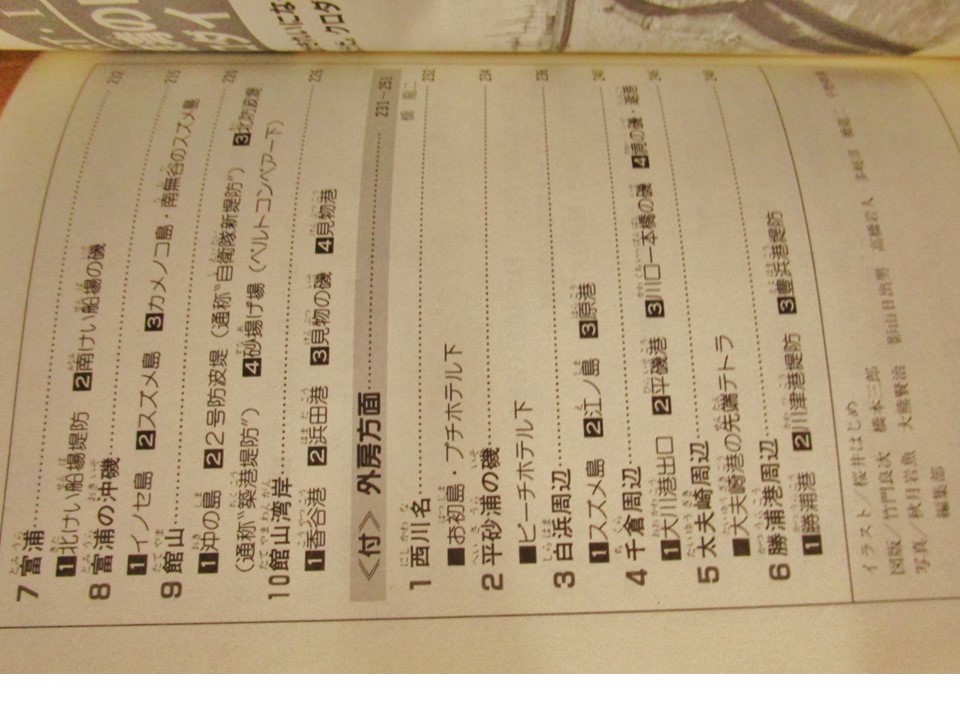 7 富浦 222
1北けい船場堤防 2南けい船場の磯
8 富浦の沖磯 225
1イノセ島 2スズメ島 3カメノコ島・南無谷のスズメ島
9 館山 226
1沖の島 2 22号防波堤（通称“自衛隊新堤防”） 3北防波堤
（通称“築港堤防”） 4砂揚げ場（ベルトコンベアー下）
10 館山湾岸 228
1香谷港 2浜田港 3見物の磯 4見物港
〈付〉 外房方面 231〜251
1 西川名 232
■お初島・プチホテル下
2 平砂浦の磯 234
■ビーチホテル下
3 白浜周辺
1スズメ島 2江ノ島 3原港
4 千倉周辺
1大川港出口 2平磯港 3川口一本橋の磯
5 太夫崎周辺
■太夫崎港の先端テトラ
6 勝浦港周辺
1勝浦港 2川津港堤防 3豊浜港堤防
イラスト／桜井はじめ
図版／竹門良次 橋本三郎 影山日出男 高橋岩人
写真／秋月岩魚 大熊賢治
編集部